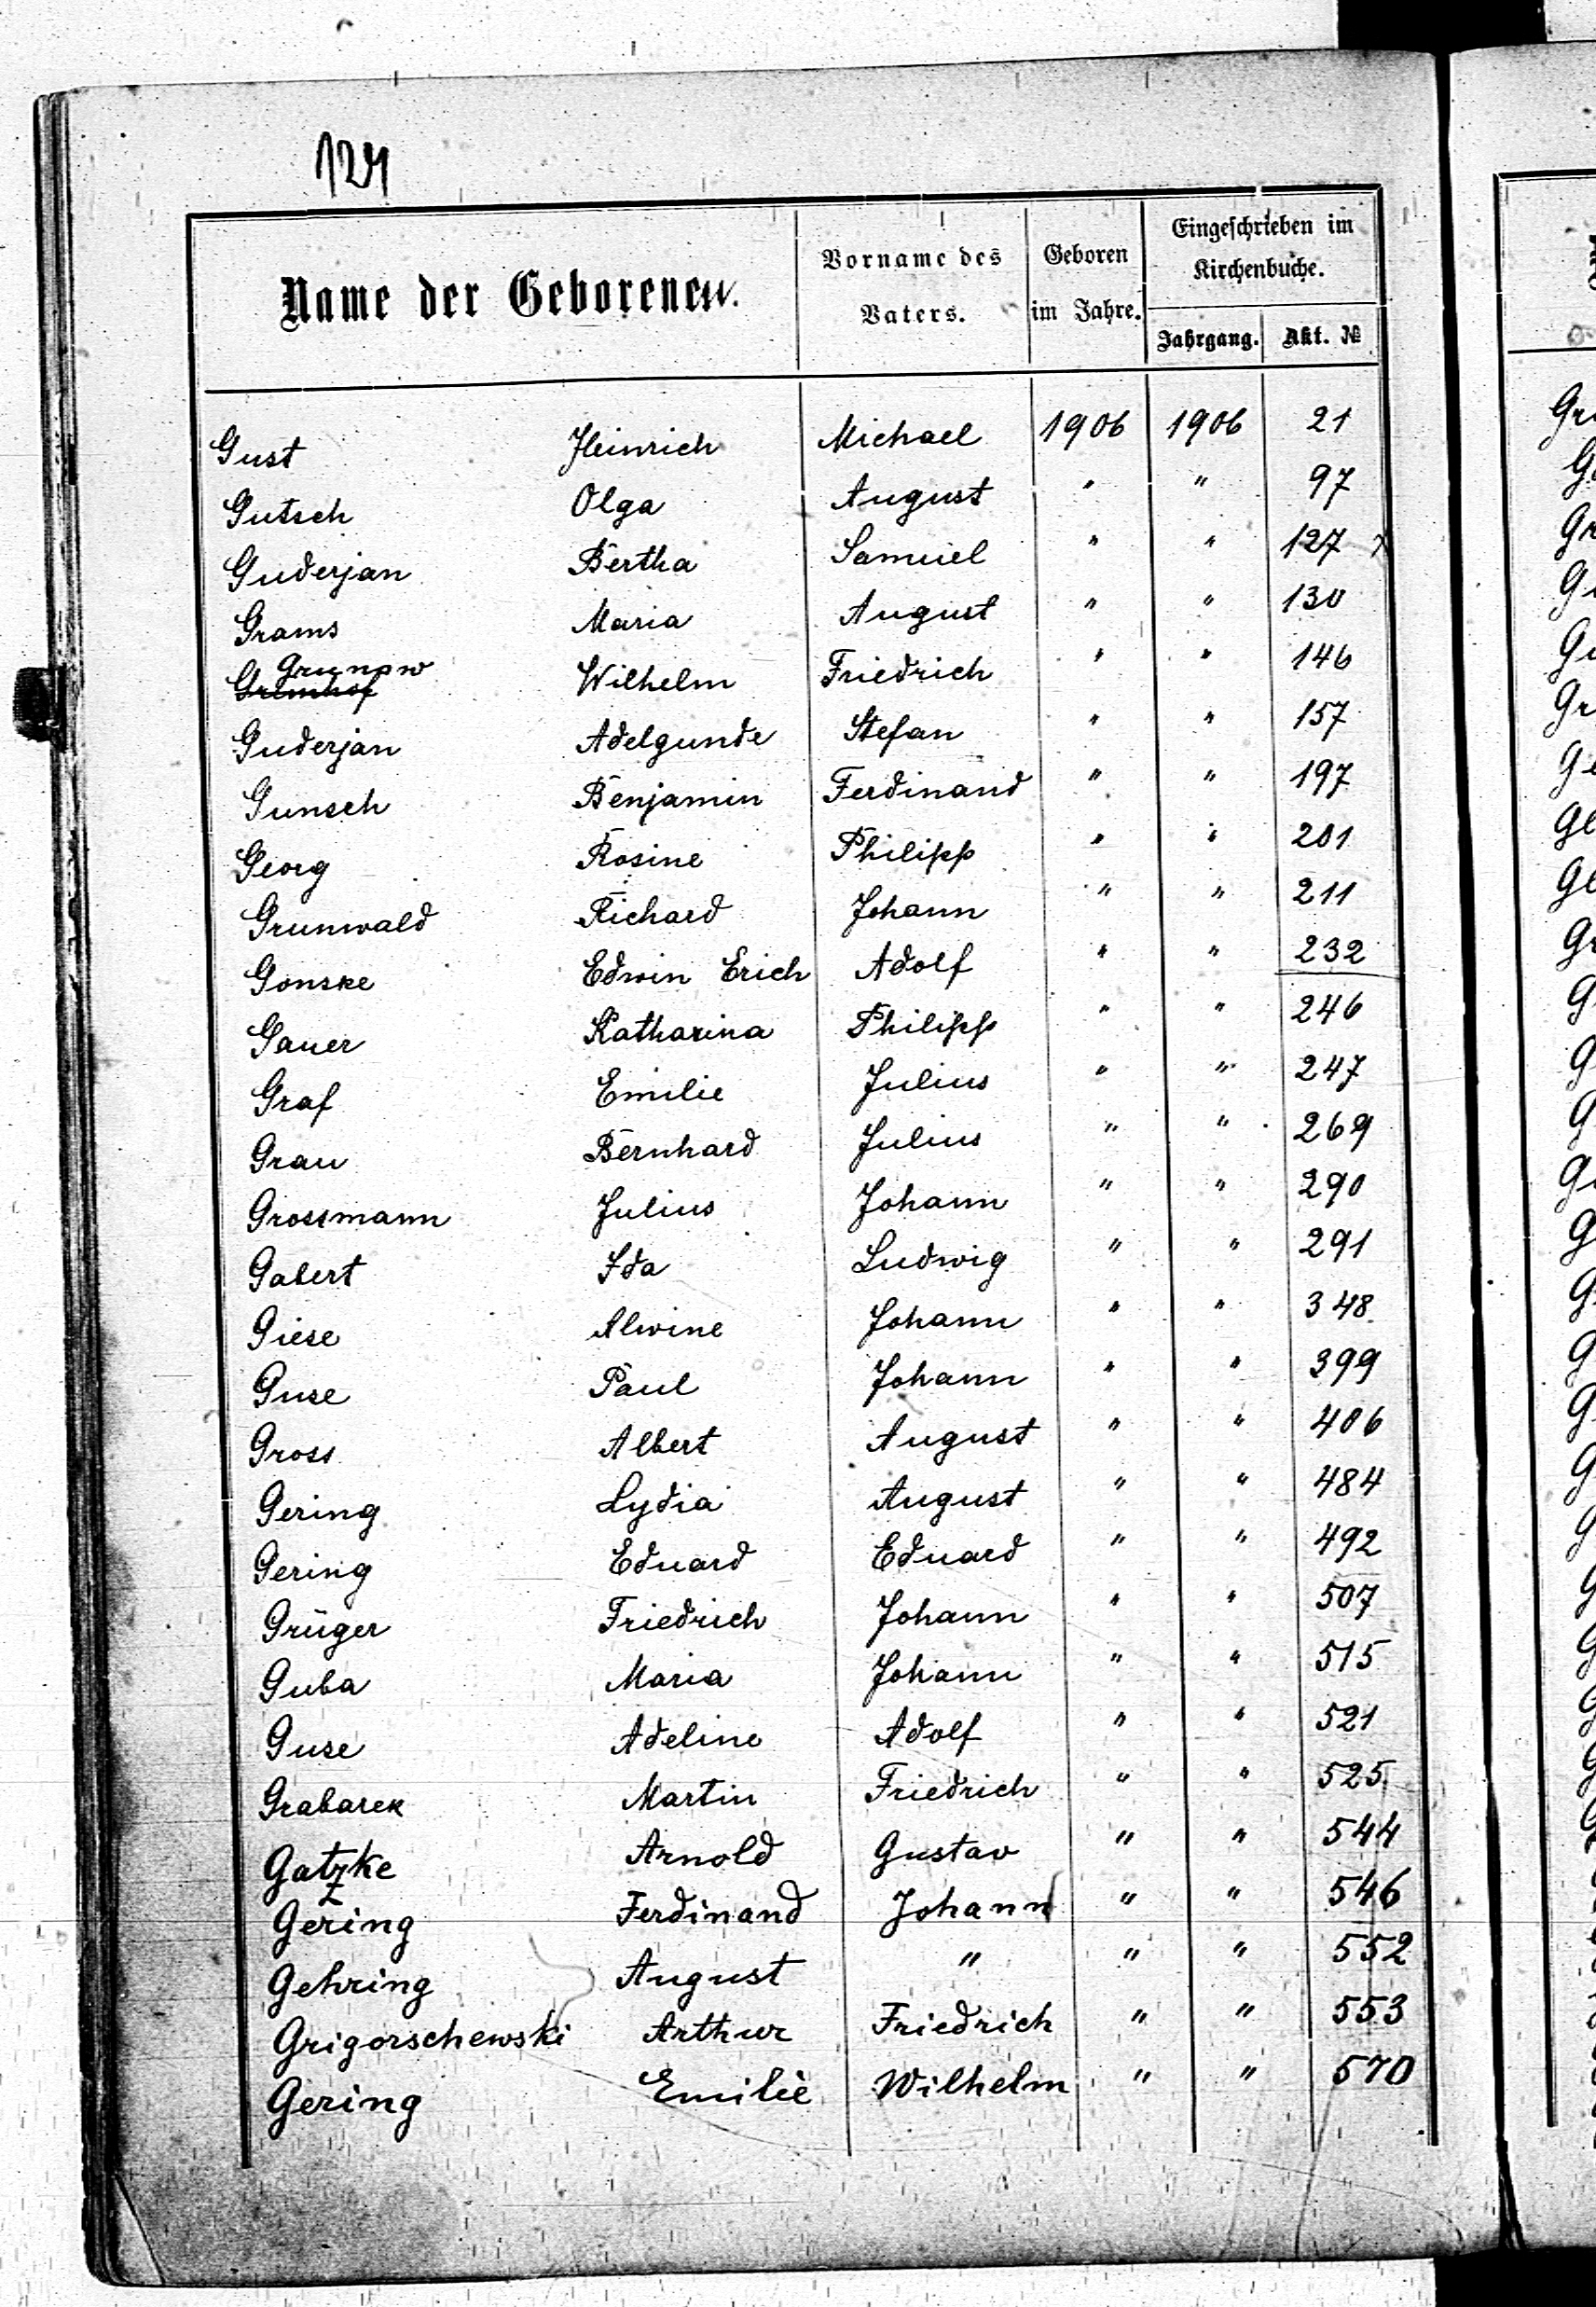 124
Name der Geborenen.
Vorname des Vaters.
Geboren im Jahre.
Eingeschrieben im Kirchenbuche.
Jahrgang. Akt. №
Gust Heinrich Michael 1906 1906 21
Gutsch Olga August " " 97
Guderjan Bertha Samuel " " 127
Grams Maria August " " 130
Grunow
Wilhelm Friedrich " " 146
Guderjan Adelgunde Stefan " " 157
Gunsch Benjamin Ferdinand " " 197
Georg Rosine Philipp " " 201
Grunwald Richard Johann " " 211
Gonske Edwin Erich Adolf " " 232
Gauer Katharina Philipp " " 246
Graf Emilie Julius " " 247
Grau Bernhard Julius " " 269
Grossmann Julius Johann " " 290
Gabert Ida Ludwig " " 291
Giese Alwine Johann " " 348
Guse Paul Johann " " 399
Gross Albert August " " 406
Gering Lydia August " " 484
Gering Eduard Eduard " " 492
Grüger Friedrich Johann " " 507
Guba Maria Johann " " 515
Guse Adeline Adolf " " 521
Grabarek Martin Friedrich " " 525
Gatzke Arnold Gustav " " 544
Gering Ferdinand Johann " " 546
Gehring August " " " 552
Grigorschewski Arthur Friedrich " " 553
Gering Emilie Wilhelm " " 570